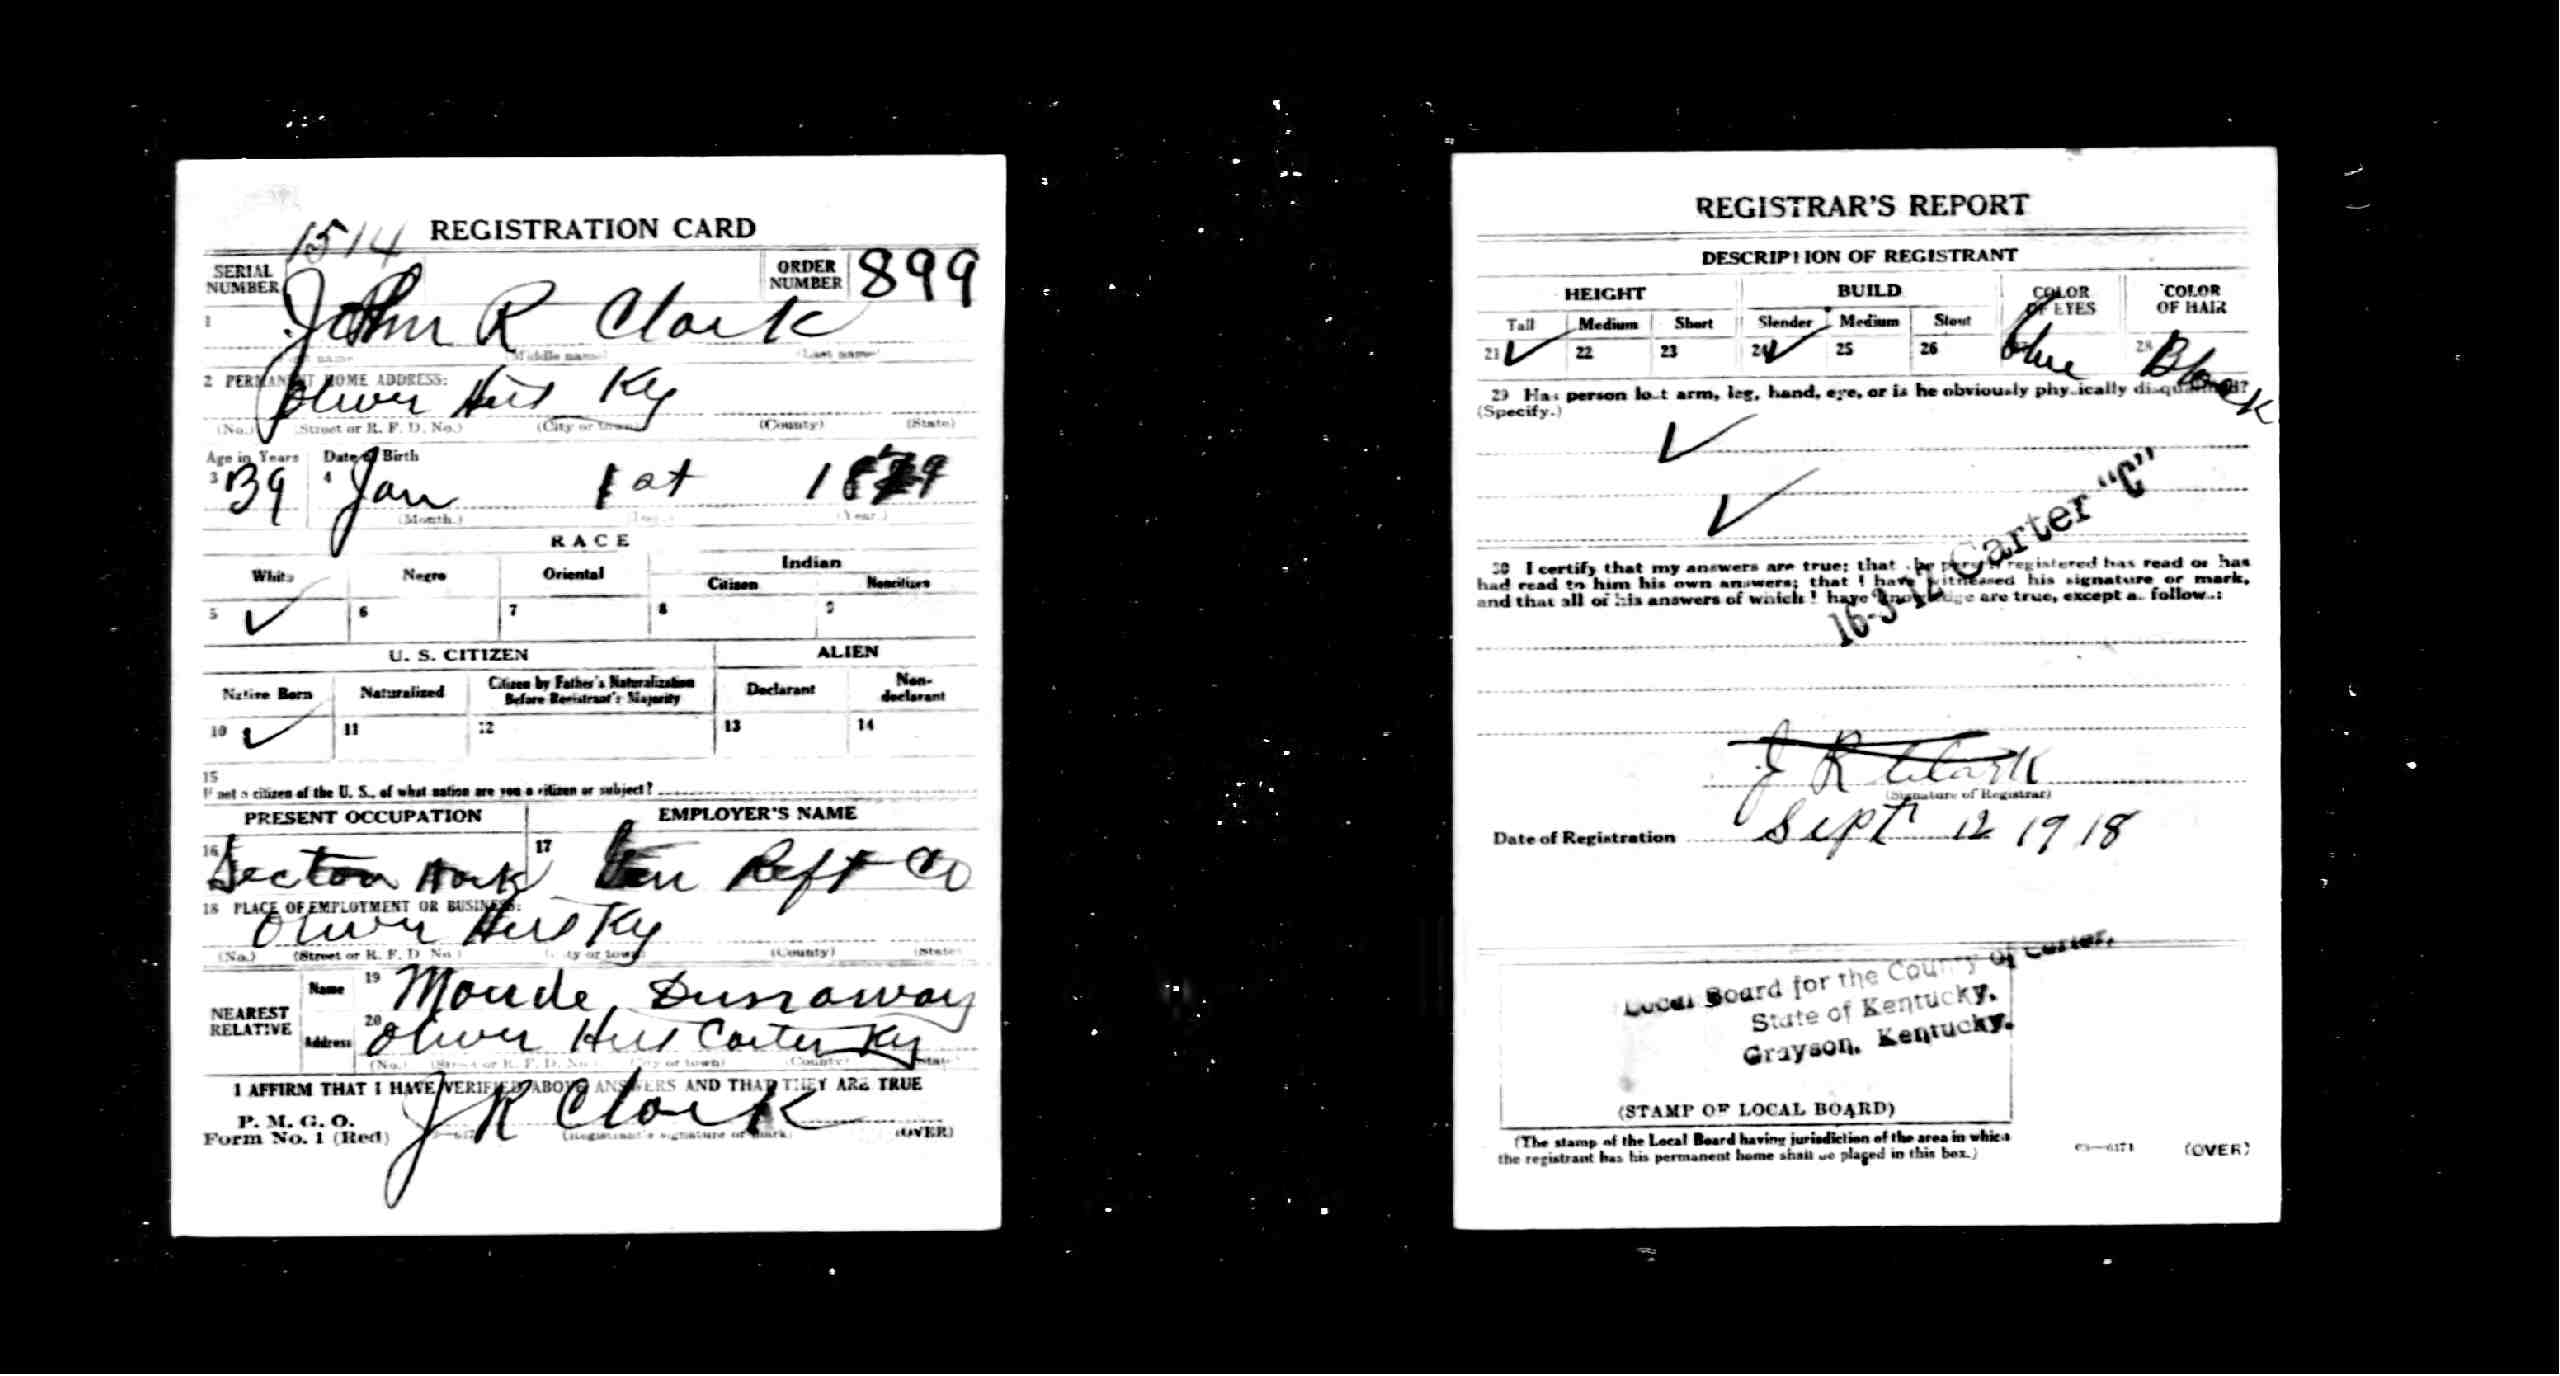 REGISTRATION CARD
1514
SERIAL NUMBER
ORDER NUMBER 899
1 John R Clark
(Middle name) (Last name)
2 PERMANENT HOME ADDRESS:
Oliver Hill Ky
(No.) (Street or R. F. D. No.) (City or town) (County) (State)
Age in Years Date of Birth
3 39 4 Jan 1st 1879
(Month.) (Year.)
RACE
White Negro Oriental Indian
Citizen Noncitizen
5 ✓ 6 7 8 9
U. S. CITIZEN ALIEN
Native Born Naturalized Citizen by Father's Naturalization Before Registrant's Majority Declarant Non-declarant
10 ✓ 11 12 13 14
15
If not a citizen of the U. S., of what nation are you a citizen or subject?
PRESENT OCCUPATION EMPLOYER'S NAME
16 Section 17 Reft Co
18 PLACE OF EMPLOYMENT OR BUSINESS:
Oliver Hill Ky
(No.) (Street or R. F. D. No.) (City or town) (County) (State)
NEAREST RELATIVE
Name 19 Maude Dunaway
Address 20 Oliver Hill Carter Ky
(No.) (Street or R. F. D. No.) (City or town) (County) (State)
I AFFIRM THAT I HAVE VERIFIED ABOVE ANSWERS AND THAT THEY ARE TRUE
P. M. G. O.
Form No. 1 (Red) J R Clark
(Registrant's signature or mark) (OVER)
REGISTRAR'S REPORT
DESCRIPTION OF REGISTRANT
HEIGHT BUILD COLOR OF EYES COLOR OF HAIR
Tall Medium Short Slender Medium Stout
21 ✓ 22 23 24 ✓ 25 26 Blue 28 Black
29 Has person lost arm, leg, hand, eye, or is he obviously physically disqualified?
(Specify.)
✓
✓
16-3-12 Carter "C"
30 I certify that my answers are true; that the person registered has read or has
had read to him his own answers; that I have witnessed his signature or mark,
and that all of his answers of which I have knowledge are true, except as follows:
J R Clark
(Signature of Registrar)
Date of Registration Sept 12 1918
Local Board for the County of Carter,
State of Kentucky.
Grayson, Kentucky.
(STAMP OF LOCAL BOARD)
(The stamp of the Local Board having jurisdiction of the area in which
the registrant has his permanent home shall be placed in this box.)
03—6171 (OVER)